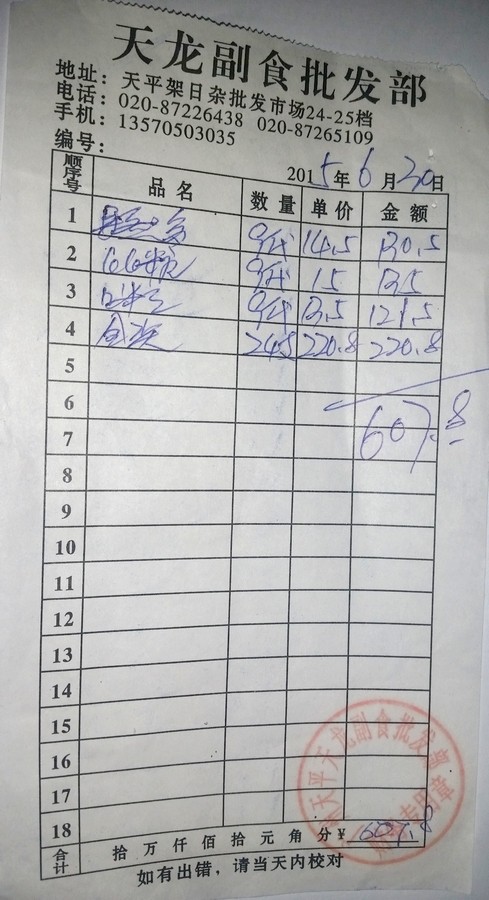 天龙副食批发部
地址：天平架日杂批发市场24-25档
电话：020-87226438 020-87265109
手机：13570503035
编号： 2015年6月30日
顺序号 品名 数量 单价 金额
1 9 14.5 130.5
2 9 15 135
3 9 13.5 121.5
4 245 220.8 220.8
5
6
7 607.8
8
9
10
11
12
13
14
15
16
17
18
合计 拾万仟佰拾元角分¥ 607.8
如有出错，请当天内校对
天平天龙副食批发部
专用章